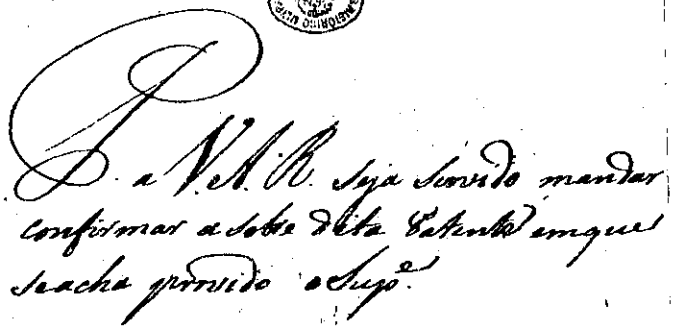 P. a V. A. R. seja servido mandar
confirmar a sobre dita Patente em que
se acha provido o Sup.e